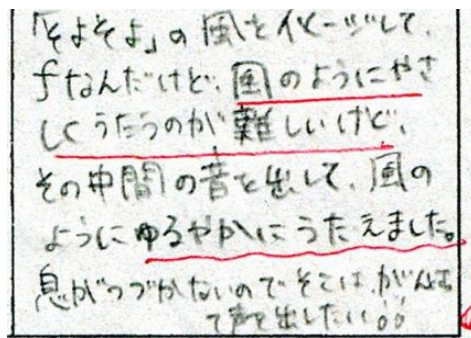 「そよそよ」の風をイメージして、
fなんだけど、風のようにやさ
しくうたうのが難しいけど、
その中間の音を出して、風の
ようにゆるやかにうたえました。
息がつづかないのでそこは、がんばっ
て声を出したい。